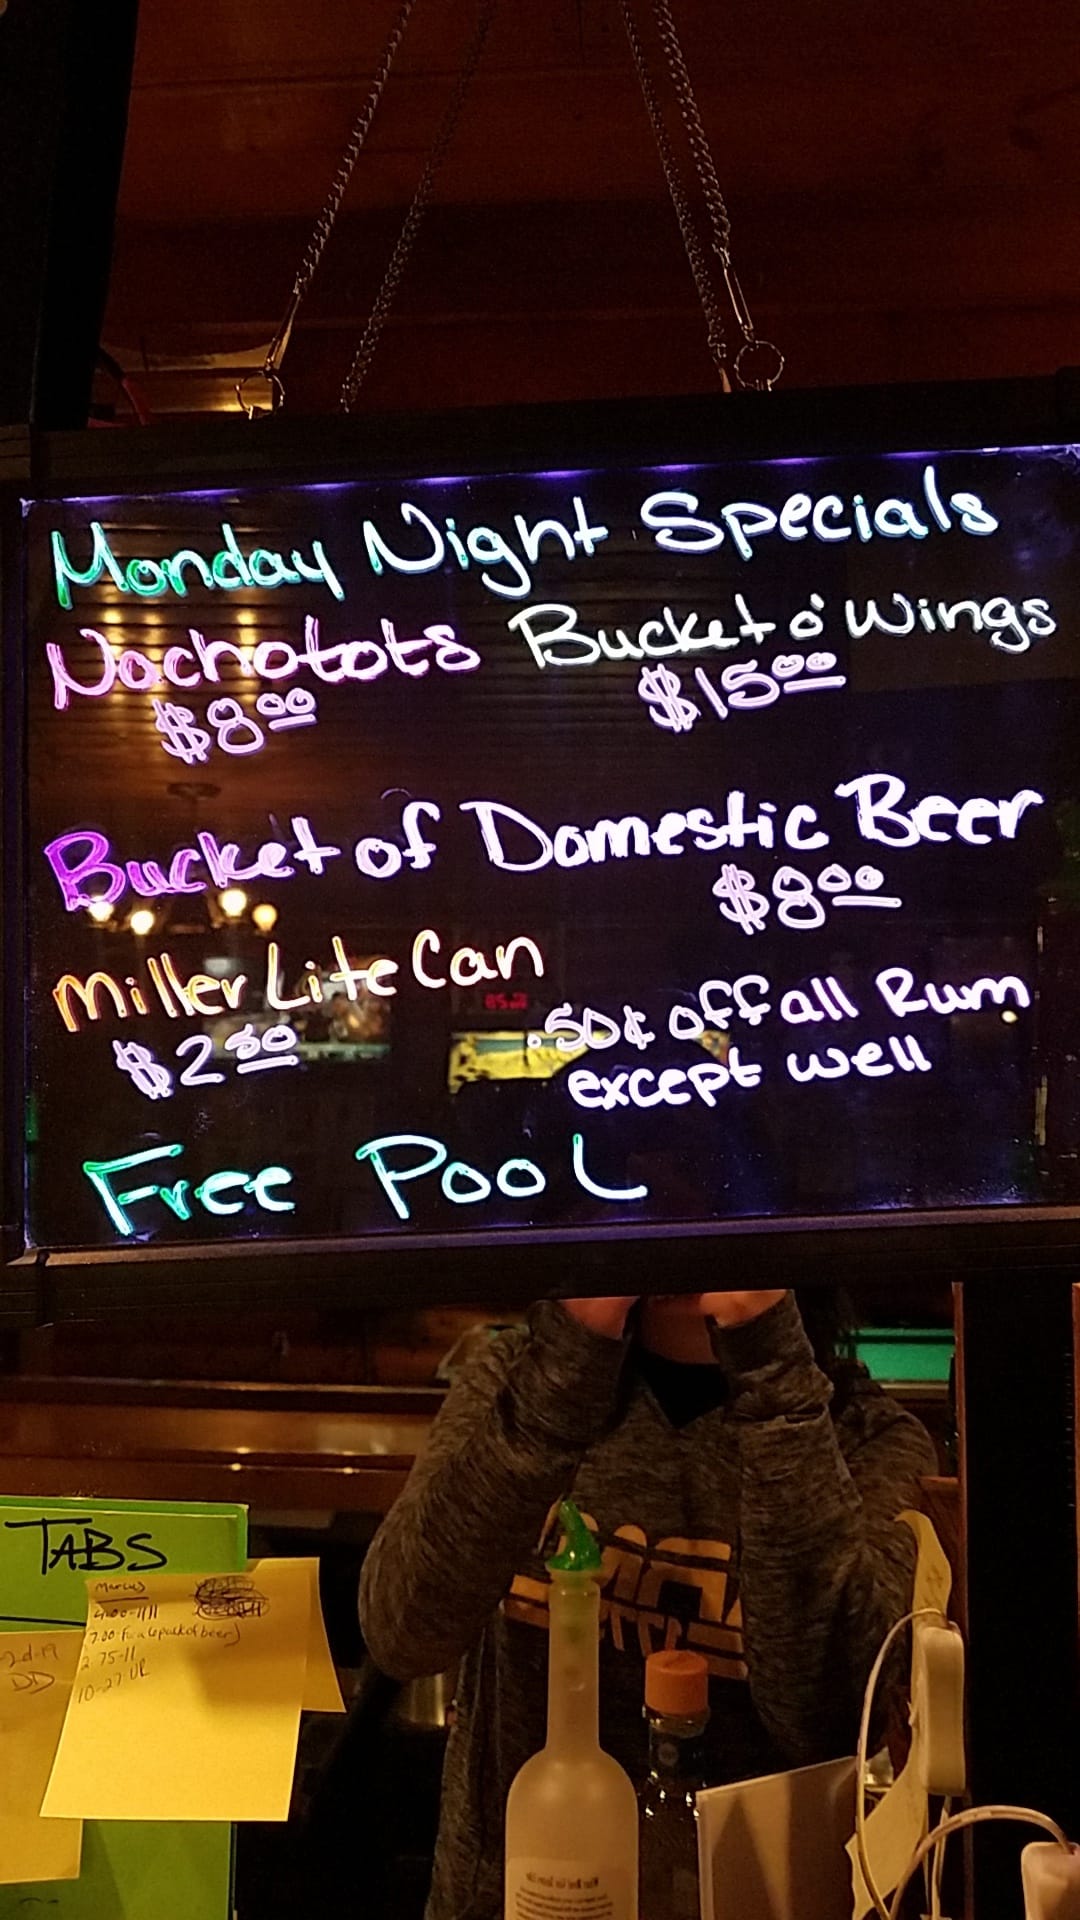 Monday Night Specials
Nachotots Bucket o' Wings
$8.00 $15.00
Bucket of Domestic Beer
$8.00
Miller Lite Can
$2.50
.50¢ off all Rum
except well
Free Pool
TABS
Marcus
4.00-1111
7.00-For a 6 pack of beer)
2.75-11
10-27 UR
DD